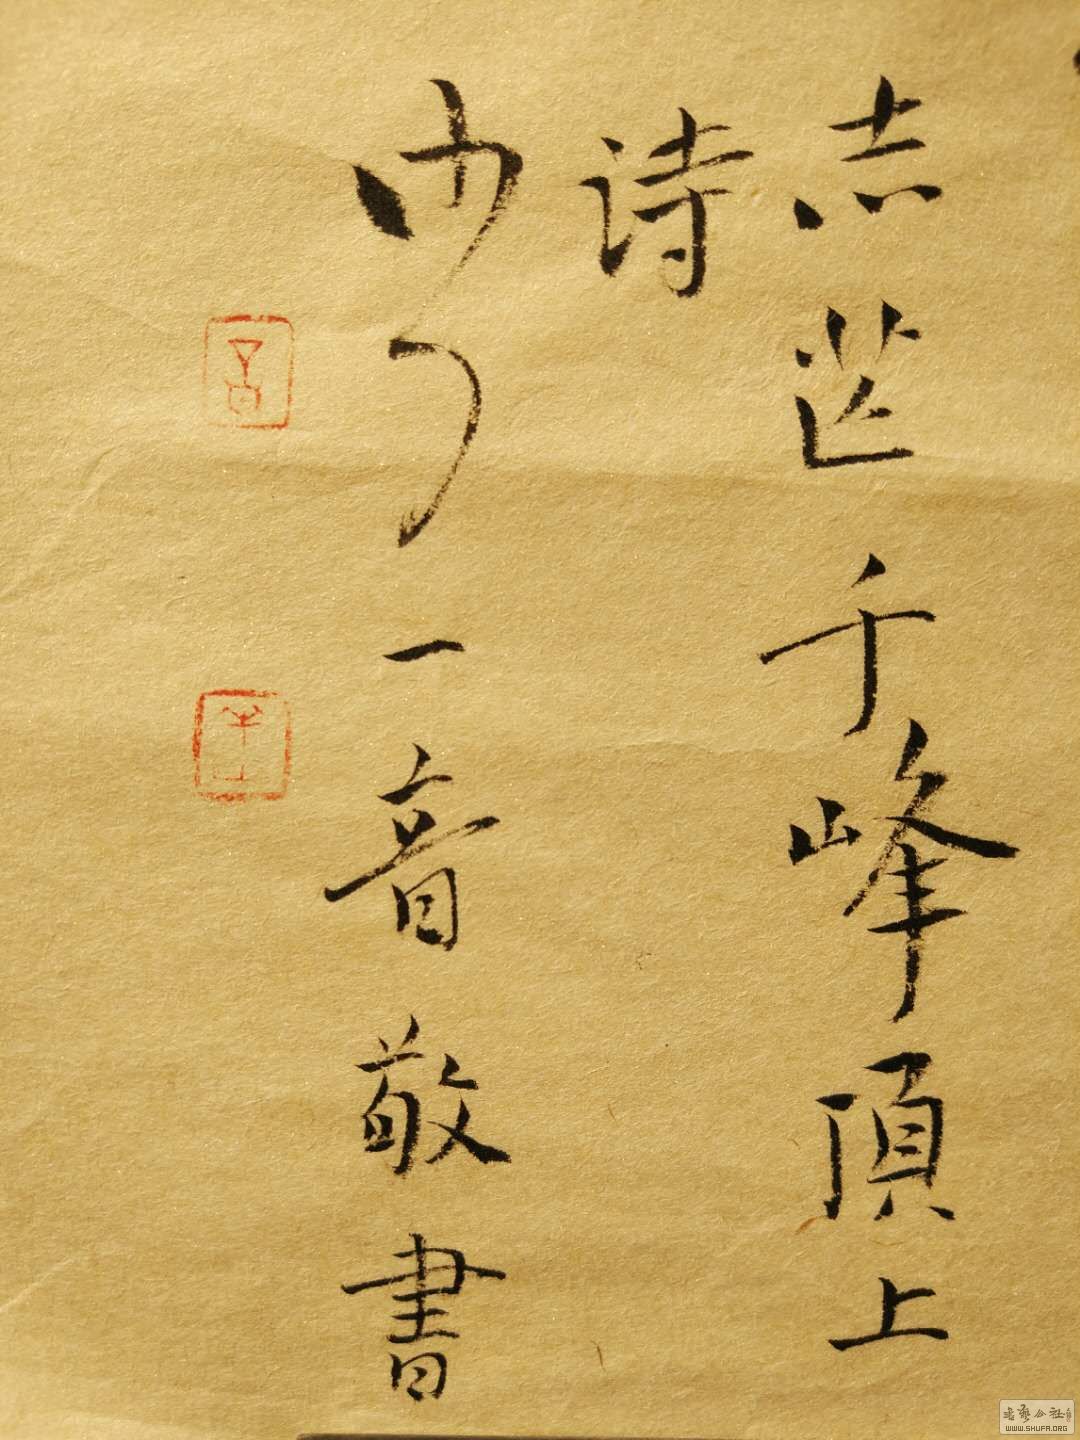 志芝千峰頂上
诗
一音敬書
書藝公社
WWW.SHUFA.ORG